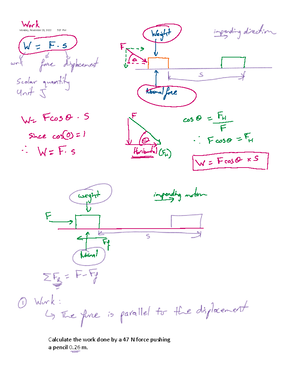 Work
W = F · s
work force displacement
Scalar quantity
Unit J
Weight
impending direction
F
θ
s
Normal force
W = Fcosθ · S
since cos(0) = 1
∴ W = F · S
F
θ
Horizontal (FH)
cos θ = FH / F
∴ Fcosθ = FH
W = Fcosθ × S
Weight
impending motion
F
Ff
s
Normal
ΣFx = F - Ff
① Work :
↳ The force is parallel to the displacement
Calculate the work done by a 47 N force pushing
a pencil 0.26 m.